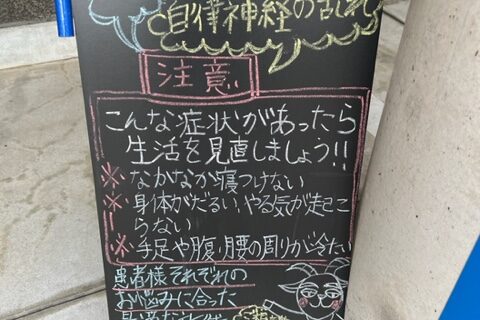 自律神経の乱れ
注意
こんな症状があったら
生活を見直しましょう!!
※なかなか寝つけない
※身体がだるい、やる気が起こ
らない
※手足や腹、腰の周りが冷たい
患者様それぞれの
お悩みに合った